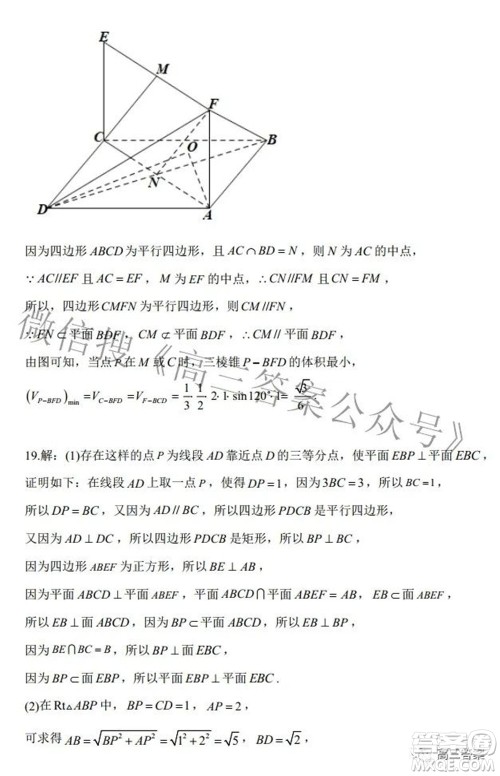 E
M
F
C
B
O
N
D
A
因为四边形 ABCD 为平行四边形，且 AC∩BD=N，则 N 为 AC 的中点，
∵AC//EF 且 AC=EF，M 为 EF 的中点，∴CN//FM 且 CN=FM，
所以，四边形 CMFN 为平行四边形，则 CM//FN，
∴FN⊂平面 BDF，CM⊄平面 BDF，∴CM//平面 BDF，
由图可知，当点 P 在 M 或 C 时，三棱锥 P−BFD 的体积最小，
(V_{P−BFD})_{min}=V_{C−BFD}=V_{F−BCD}=1/3·1/2·2·1·sin120°·1=√3/6.
19.解：(1)存在这样的点 P 为线段 AD 靠近点 D 的三等分点，使平面 EBP⊥平面 EBC，
证明如下：在线段 AD 上取一点 P，使得 DP=1，因为 3BC=3，所以 BC=1，
所以 DP=BC，又因为 AD//BC，所以四边形 PDCB 是平行四边形，
又因为 AD⊥DC，所以四边形 PDCB 是矩形，所以 BP⊥BC，
因为四边形 ABEF 为正方形，所以 BE⊥AB，
因为平面 ABCD⊥平面 ABEF，平面 ABCD∩平面 ABEF=AB，EB⊂面 ABEF，
所以 EB⊥面 ABCD，因为 BP⊂平面 ABCD，所以 EB⊥BP，
因为 BE∩BC=B，所以 BP⊥面 EBC，
因为 BP⊂面 EBP，所以平面 EBP⊥平面 EBC.
(2)在 Rt△ABP 中，BP=CD=1，AP=2，
可求得 AB=√(BP²+AP²)=√(1²+2²)=√5，BD=√2，
微信搜《高三答案公众号》
高三答案